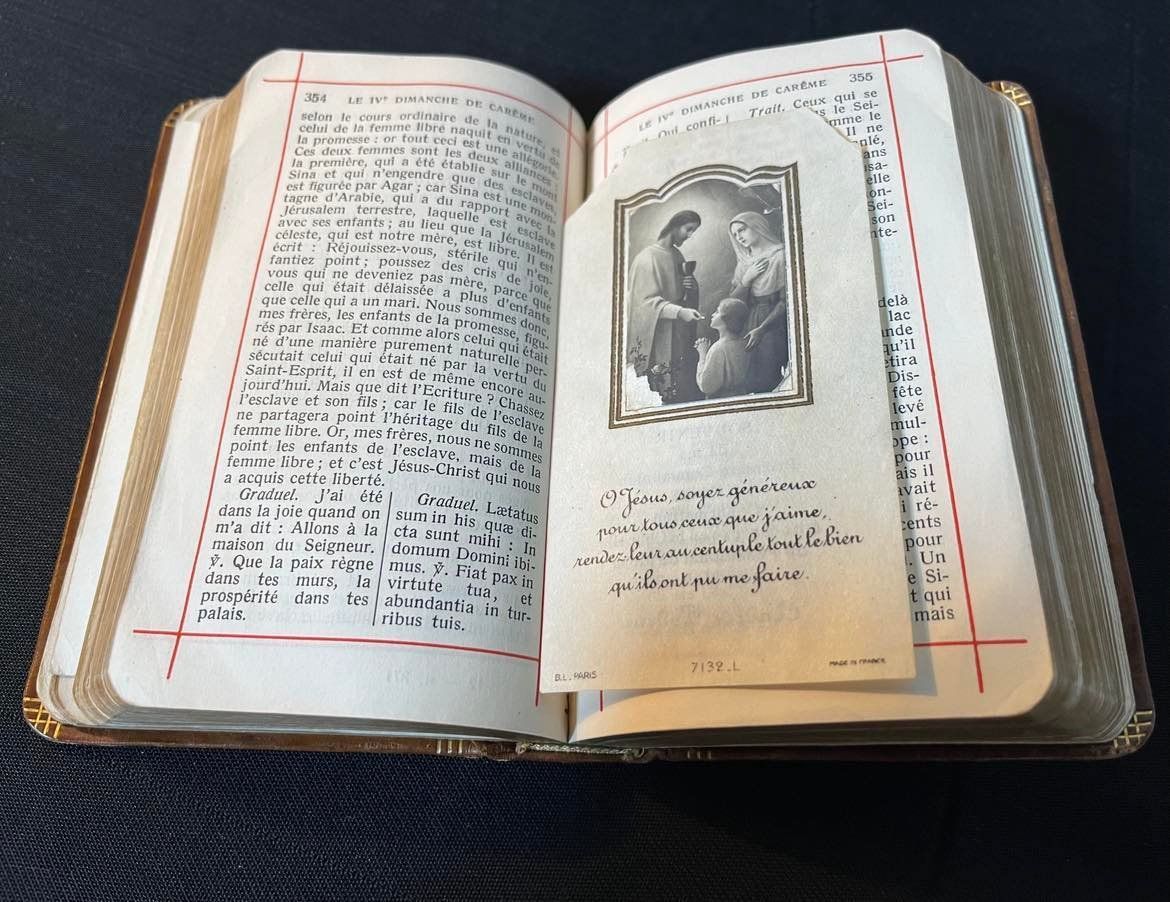 354 LE IVᵉ DIMANCHE DE CARÊME
selon le cours ordinaire de la nature, et
celui de la femme libre naquit en vertu de
la promesse : or tout ceci est une allégorie.
Ces deux femmes sont les deux alliances :
la première, qui a été établie sur le mont
Sina et qui n'engendre que des esclaves,
est figurée par Agar ; car Sina est une mon-
tagne d'Arabie, qui a du rapport avec la
Jérusalem terrestre, laquelle est esclave
avec ses enfants ; au lieu que la Jérusalem
céleste, qui est notre mère, est libre. Il est
écrit : Réjouissez-vous, stérile qui n'en-
fantiez point ; poussez des cris de joie,
vous qui ne deveniez pas mère, parce que
celle qui était délaissée a plus d'enfants
que celle qui a un mari. Nous sommes donc,
mes frères, les enfants de la promesse, figu-
rés par Isaac. Et comme alors celui qui était
né d'une manière purement naturelle per-
sécutait celui qui était né par la vertu du
Saint-Esprit, il en est de même encore au-
jourd'hui. Mais que dit l'Ecriture ? Chassez
l'esclave et son fils ; car le fils de l'esclave
ne partagera point l'héritage du fils de la
femme libre. Or, mes frères, nous ne sommes
point les enfants de l'esclave, mais de la
femme libre ; et c'est Jésus-Christ qui nous
a acquis cette liberté.
Graduel. J'ai été
dans la joie quand on
m'a dit : Allons à la
maison du Seigneur.
℣. Que la paix règne
dans tes murs, la
prospérité dans tes
palais.
Graduel. Lætatus
sum in his quæ di-
cta sunt mihi : In
domum Domini ibi-
mus. ℣. Fiat pax in
virtute tua, et
abundantia in tur-
ribus tuis.
LE IVᵉ DIMANCHE DE CARÊME 355
Qui confi-
Trait. Ceux qui se
le Sei-
mme le
Il ne
nlé,
ans
sa-
elle
on-
Sei-
son
nte-
delà
lac
nde
qu'il
etira
Dis-
fête
levé
mul-
ope :
pour
ais il
avait
i ré-
cents
pour
. Un
e Si-
t qui
mais
O Jésus, soyez généreux
pour tous ceux que j'aime,
rendez-leur au centuple tout le bien
qu'ils ont pu me faire.
B.L. PARIS
7132_L
MADE IN FRANCE